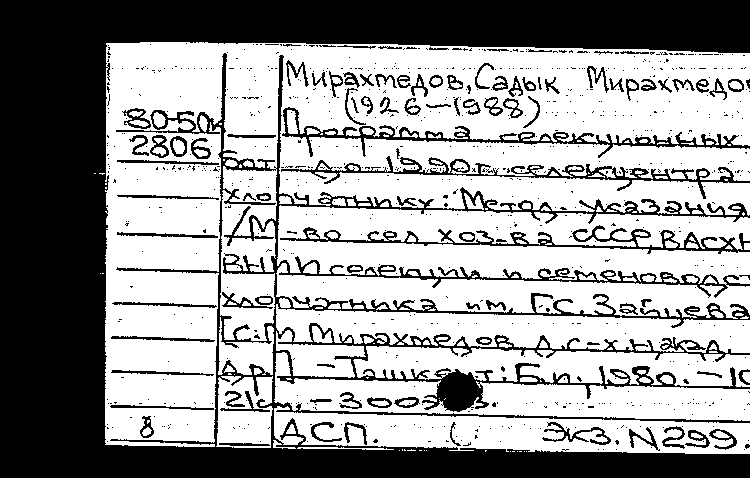 Мирахмедов, Садык Мирахмедо
(1926—1988)
80-50к Программа селекционных
2806 бот до 1990г. селекцентра
хлопчатнику: Метод. указания
/М-во сел. хоз-ва СССР, ВАСХН
ВНИИ селекции и семеноводст
хлопчатника им. Г.С. Зайцева
[С.М Мирахмедов, д.с-х.н, акад.
др] - Ташкент: Б.и., 1980. - 10
21см. - 300экз.
8 ДСП. Экз. N 299.